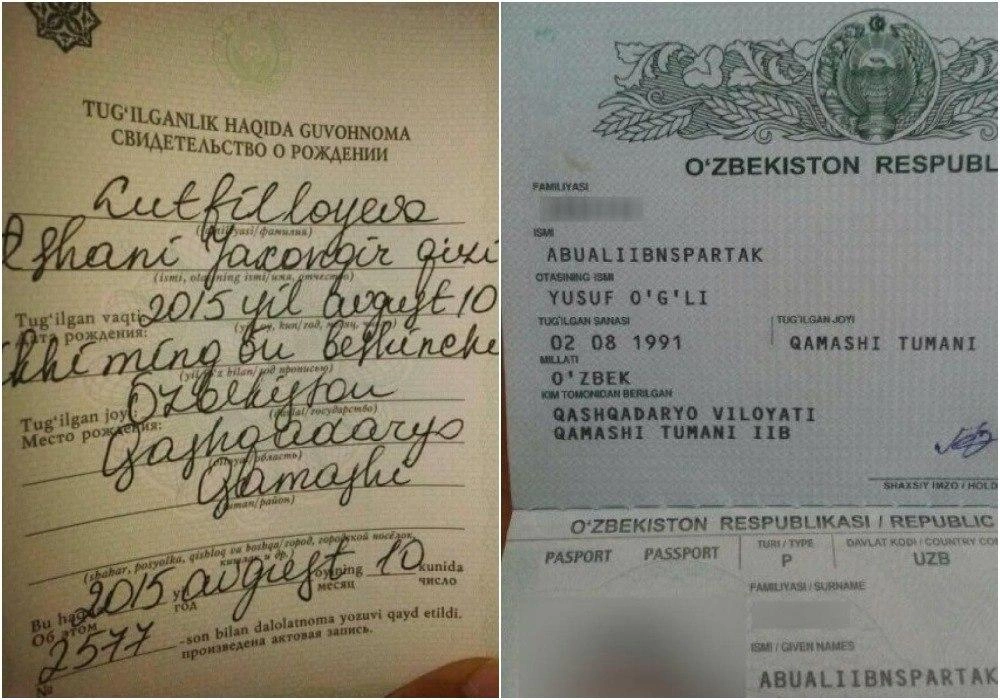 TUG‘ILGANLIK HAQIDA GUVOHNOMA
СВИДЕТЕЛЬСТВО О РОЖДЕНИИ
Lutfilloyeva
(familiyasi/фамилия)
Eshani Jaxongir qizi
(ismi, otasining ismi/имя, отчество)
Tug‘ilgan vaqti 2015 yil avgust 10
Дата рождения:
ikki ming bu beshinchi
Tug‘ilgan joyi: Özbekiston
Место рождения:
Qashqadaryo
Qamashi
(shahar, posyolka, qishloq va boshqa/город, городской посёлок,
кишлак и др.)
2015 avgust oyining 10 kunida
Об этом год месяц число
№ 2577 -son bilan dalolatnoma yozuvi qayd etildi.
произведена актовая запись.
O‘ZBEKISTON RESPUBL
FAMILIYASI
ISMI
ABUALIIBNSPARTAK
OTASINING ISMI
YUSUF O'G'LI
TUG‘ILGAN SANASI TUG‘ILGAN JOYI
02 08 1991 QAMASHI TUMANI
MILLATI
O'ZBEK
KIM TOMONIDAN BERILGAN
QASHQADARYO VILOYATI
QAMASHI TUMANI IIB
SHAXSIY IMZO / HOLD
O‘ZBEKISTON RESPUBLIKASI / REPUBLIC
PASPORT PASSPORT TURI / TYPE DAVLAT KODI / COUNTRY CO
P UZB
FAMILIYASI / SURNAME
ISMI / GIVEN NAMES
ABUALIIBNSPARTAK